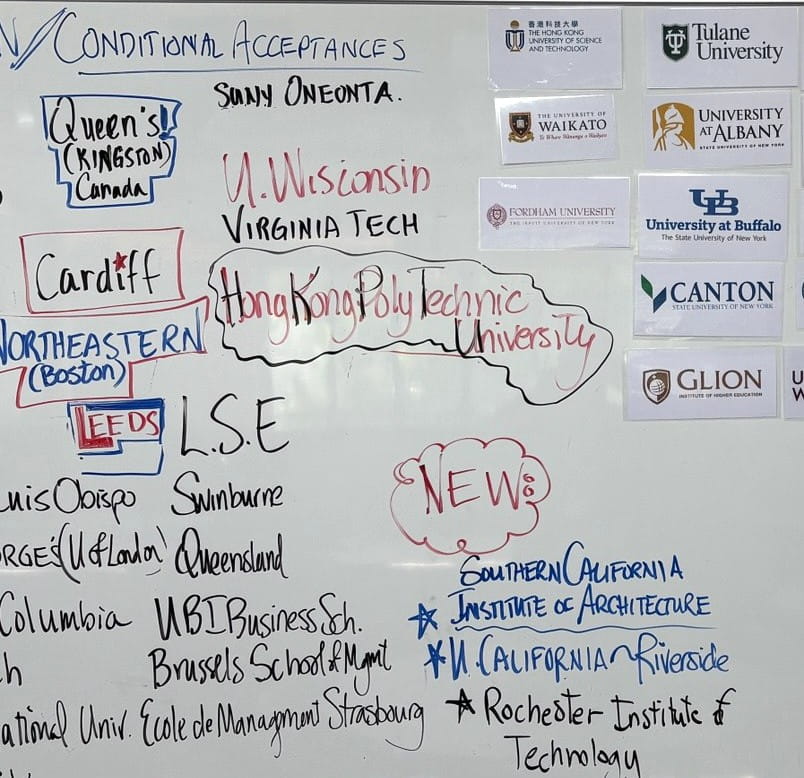 / CONDITIONAL ACCEPTANCES
Queen's!
(KINGSTON)
Canada
SUNY ONEONTA.
U. Wisconsin
VIRGINIA TECH
Cardiff
Hong Kong PolyTechnic
University
NORTHEASTERN
(Boston)
LEEDS
L.S.E
Luis Obispo Swinburne
RGE'S (U of London) Queensland
Columbia UBI Business Sch.
h Brussels School of Mgmt
ational Univ. Ecole de Managment Strasbourg
香港科技大學
THE HONG KONG
UNIVERSITY OF SCIENCE
AND TECHNOLOGY
Tulane
University
THE UNIVERSITY OF
WAIKATO
Te Whare Wānanga o Waikato
UNIVERSITY
AT ALBANY
STATE UNIVERSITY OF NEW YORK
FORDHAM UNIVERSITY
THE JESUIT UNIVERSITY OF NEW YORK
UB
University at Buffalo
The State University of New York
CANTON
STATE UNIVERSITY OF NEW YORK
GLION
INSTITUTE OF HIGHER EDUCATION
U
W
NEW:
SOUTHERN CALIFORNIA
INSTITUTE OF ARCHITECTURE
U. CALIFORNIA ~ Riverside
Rochester Institute of
Technology